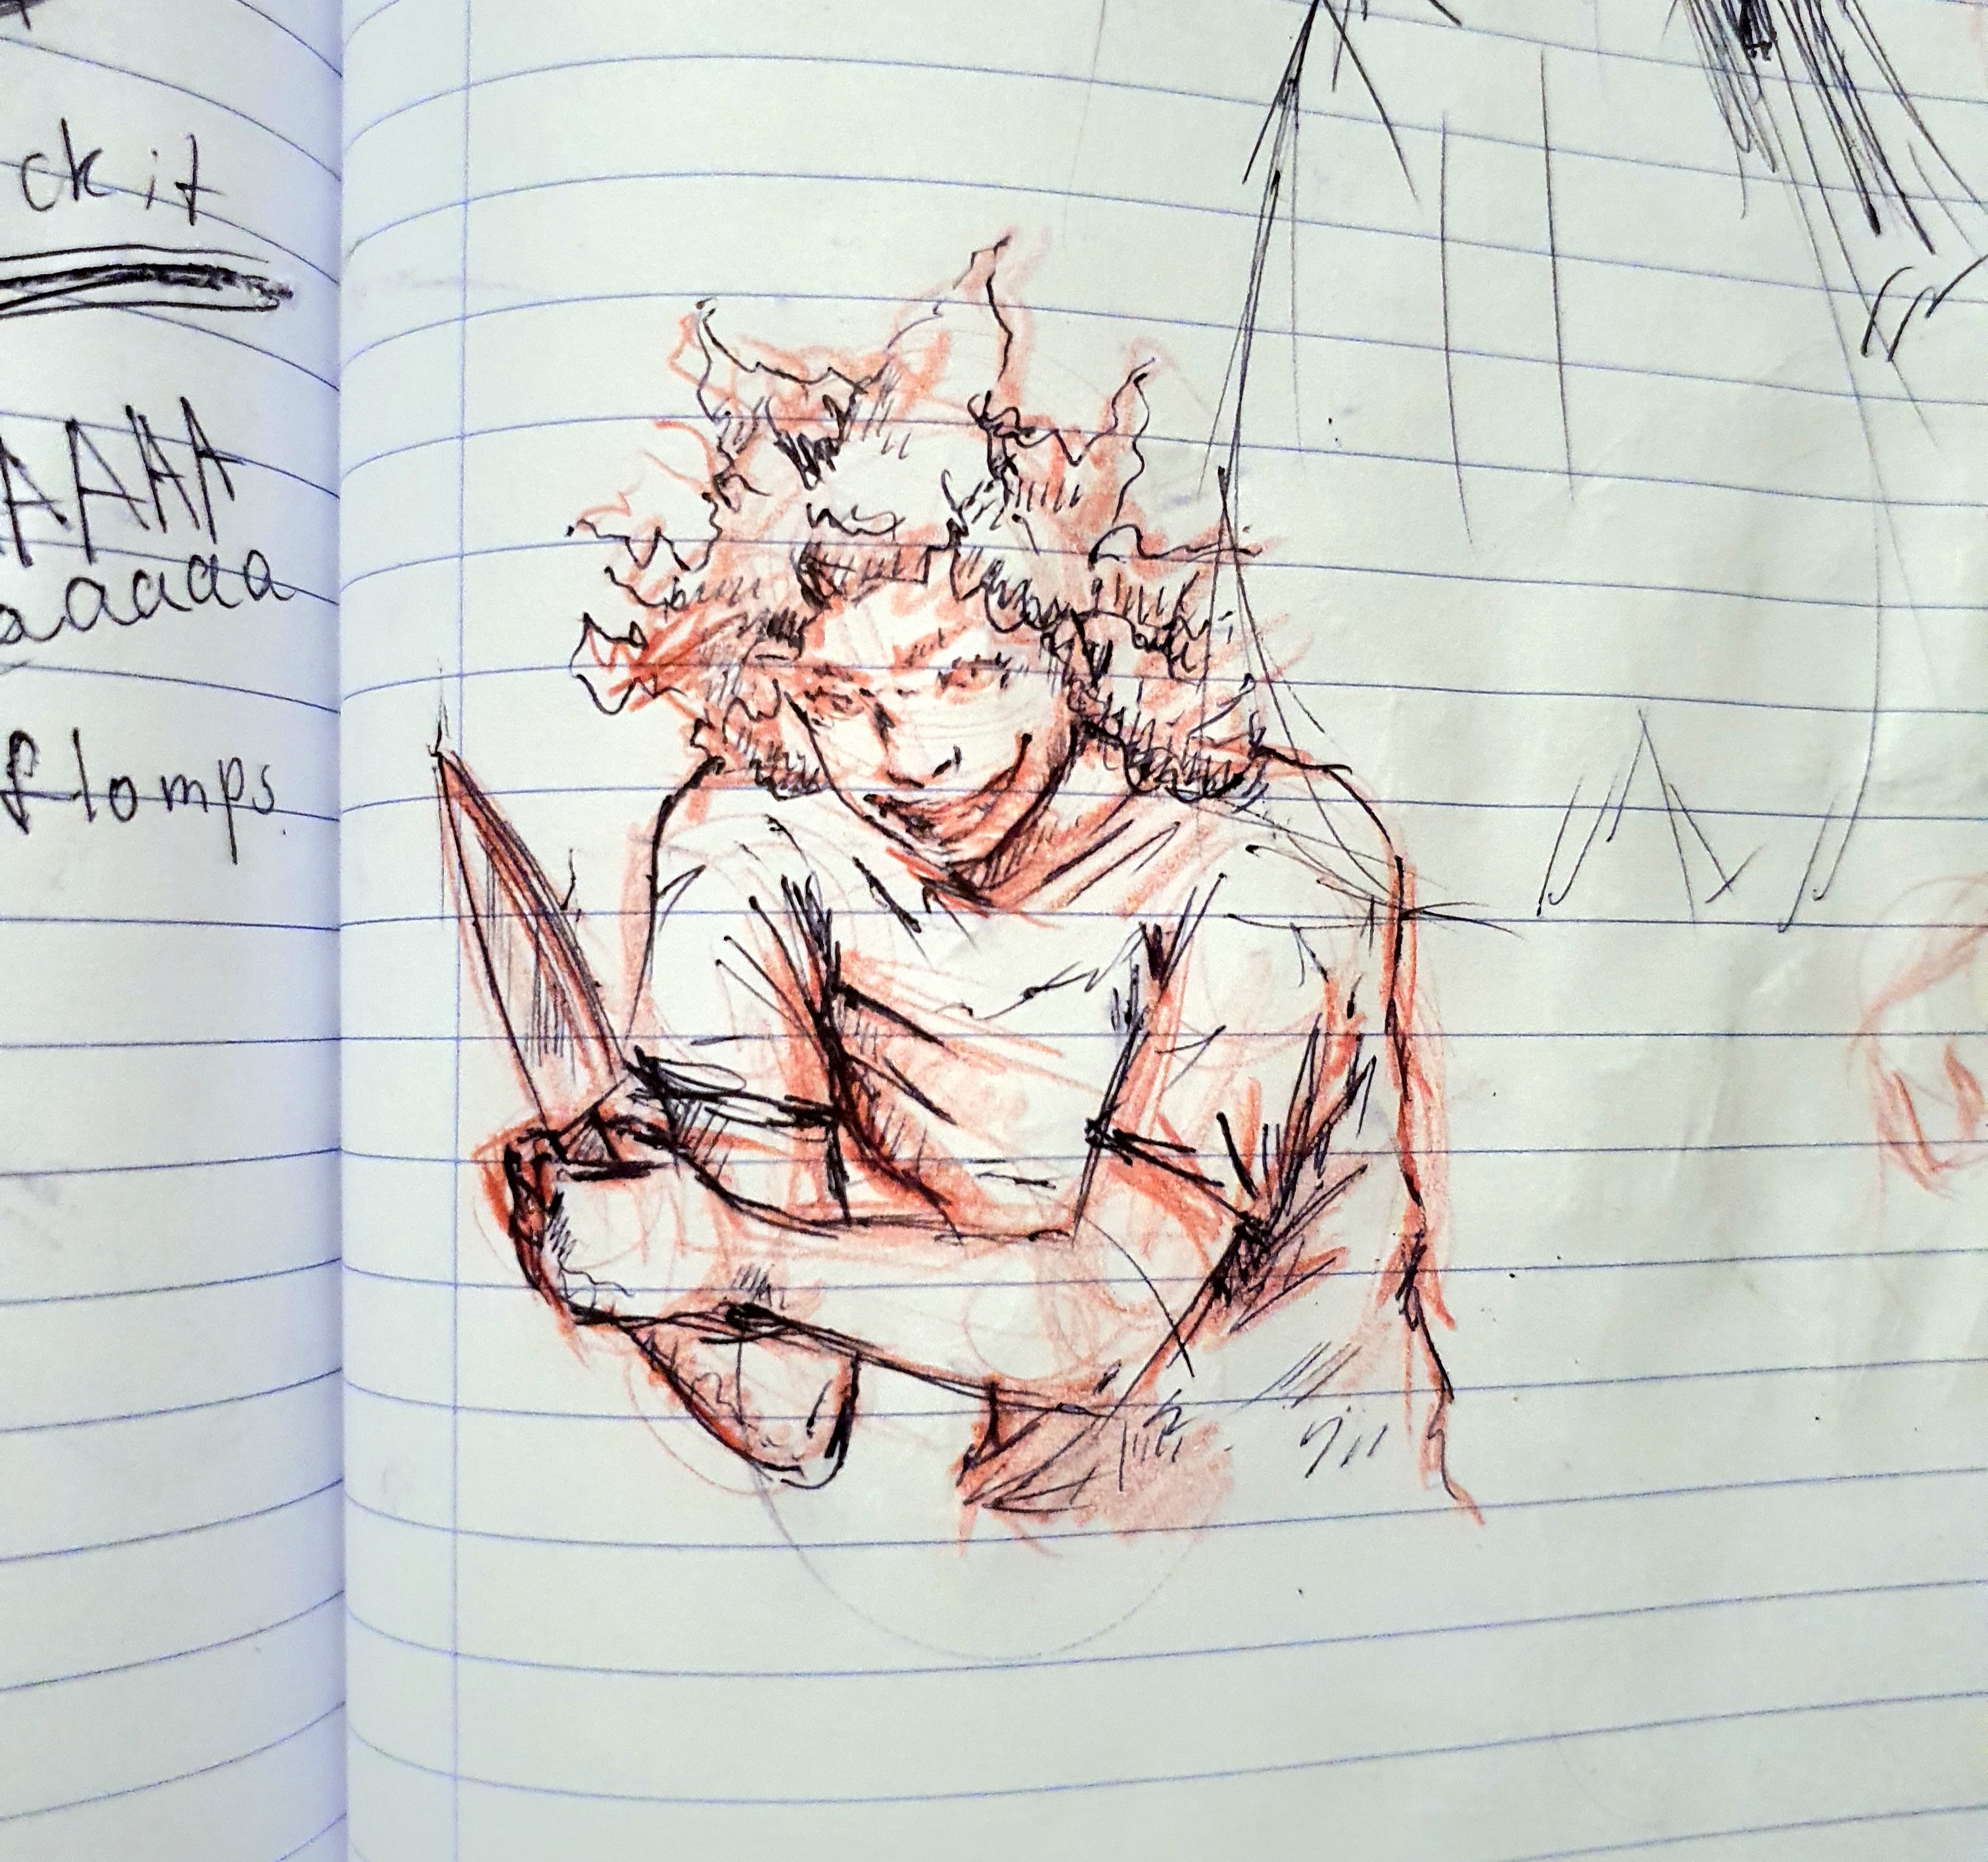 ck it
AAAA
aaaaaa
flomps